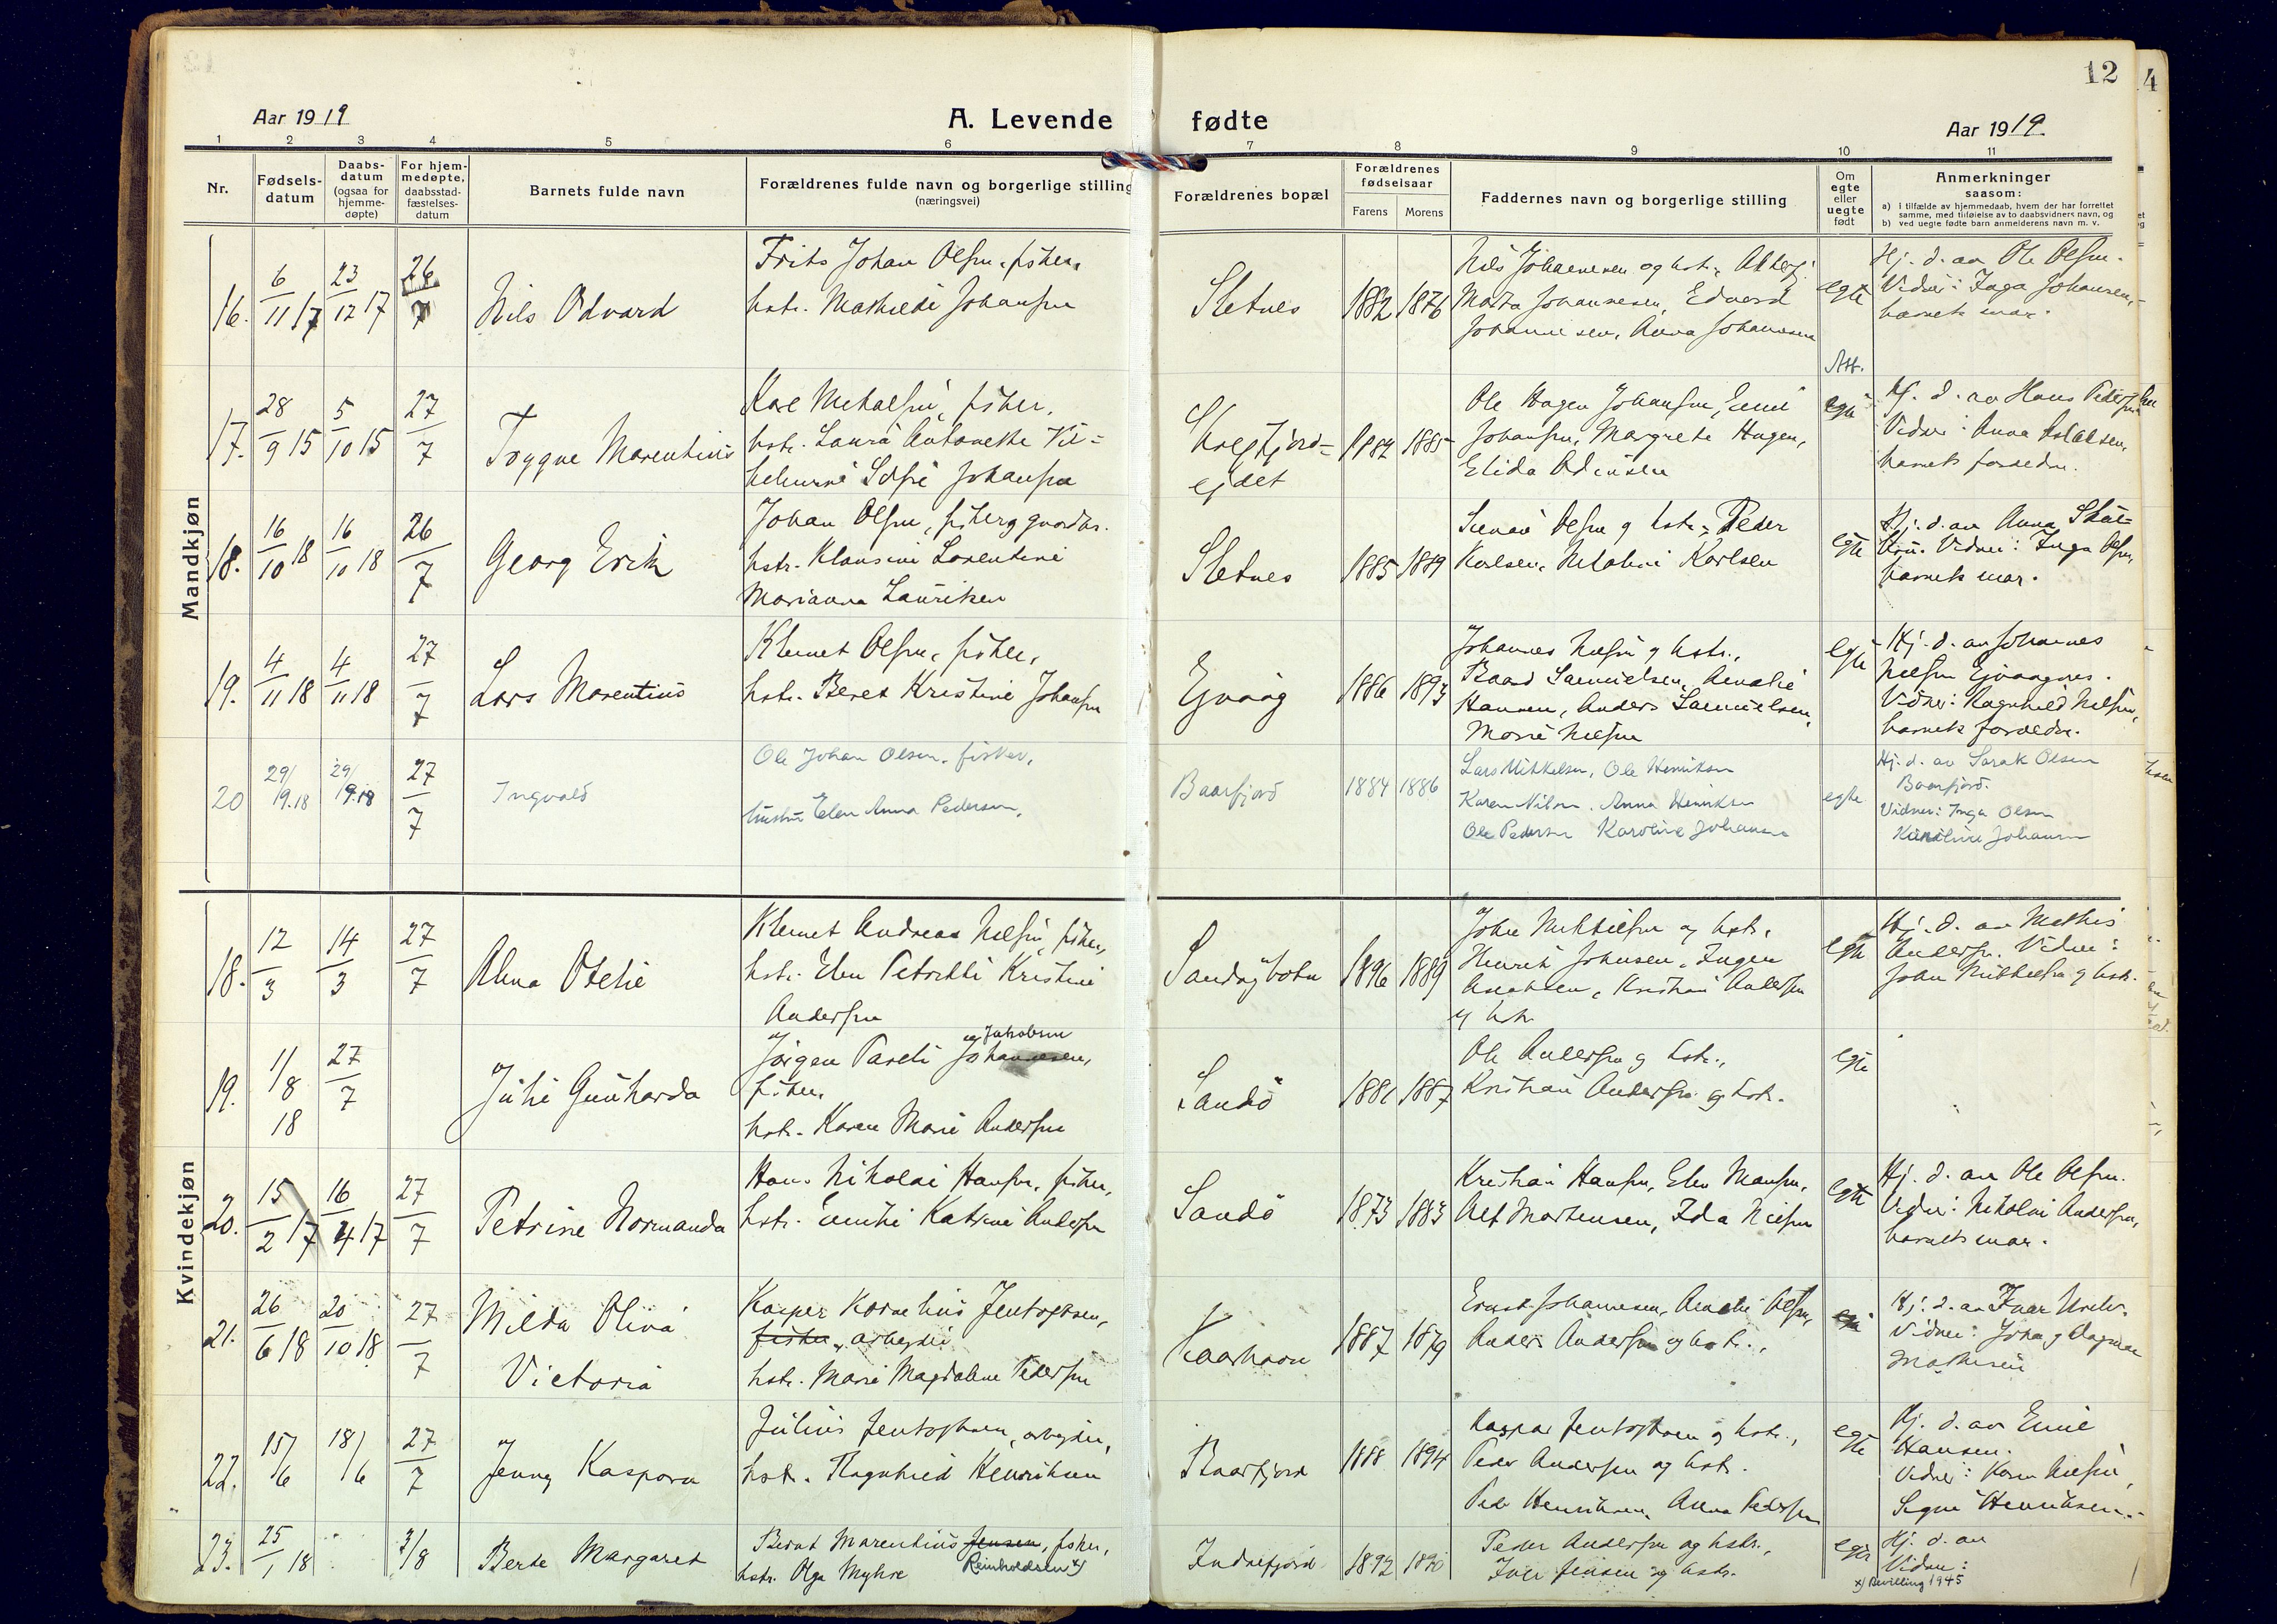 12
4
Aar 1919
A. Levende fødte
Aar 1919.
1 2 3 4 5 6 7 8 9 10 11
Nr.
Fødselsdatum
Daabsdatum (ogsaa for hjemmedøpte)
For hjemmedøpte, daabsstadfæstelsesdatum
Barnets fulde navn
Forældrenes fulde navn og borgerlige stilling
(næringsvei)
Forældrenes bopæl
Forældrenes fødselsaar
Farens Morens
Faddernes navn og borgerlige stilling
Om egte eller uegte født
Anmerkninger
saasom:
a) i tilfælde av hjemmedaab, hvem der har forrettet
samme, med tilføielse av to daabsvidners navn, og
b) ved uegte fødte barn anmelderens navn m. v.
Mandkjøn
16. 6/11 17 23/12 17 26/7 Nils Odvard
Frits Johan Olsen, fisker,
hstr. Mathilde Johansen
Sletnes 1882 1876
Nils Johannesen og hstr.,
Marta Johannesen, Edvard
Johannesen, Anna Johannesen
egte
Hj. d. av Ole Olsen.
Vidner: Inga Johansen,
barnets mor.
Att.
17. 28/9 15 5/10 15 27/7 Trygve Marentius
hstr. Laura Antonette Vil-
helmine Sofie Johansen
ejdet
1884 1885
Ole Hagen Johansen, Emil
Johansen, Margrete Hagen,
Elida
egte
Hj. d. av Hans Pedersen
Vidner: Anna
barnets forældre.
18. 16/10 18 16/10 18 26/7 Georg Erik
Johan Olsen, fisker og gaardbr.
hstr. Klausine Lorentine
Marianna Lauritsen
Sletnes 1885 1889
og hstr., Peder
Karlsen, Karlsen
egte
Hj. d. av Anna
Vidner: Inga Olsen,
barnets mor.
19. 4/11 18 4/11 18 27/7 Lars Marentius
Klemet Olsen, fisker,
hstr. Beret Kristine Johansen
Ejvaag 1886 1893
Johannes Nilsen og hstr.,
Baard Samuelsen, Amalie
Hansen, Anders Samuelsen,
Marie Nilsen
egte
Hj. d. av Johannes
Nilsen
Vidner: Ragnhild Nilsen,
barnets forældre.
20 29/9.18 29/9.18 27/7 Ingvald
Ole Johan Olsen, fisker,
hustru Elen Anna Pedersen,
Baarfjord 1884 1886
Lars Mikkelsen, Ole Henriksen
Karen Nilsen, Anna Henriksen
Ole Pedersen Karoline Johansen
egte
Hj. d. av Sarak Olsen
Baarfjord.
Vidner: Inga Olsen
Karoline Johansen
Kvindekjøn
18. 12/3 14/3 27/7 Alma Otelie
Klemet Andreas Nilsen, fisker,
hstr. Elen Petrikke Kristine
Andersen
Sandøbotn 1896 1889
John Mikkelsen og hstr.,
Henrik Johnsen, Inger
Kristian Andersen
og hstr.
egte
Hj. d. av Mathis
Andersen. Vidner:
John Mikkelsen og hstr.
19. 11/8 18 27/7 Julie Gunharda
Jørgen Pareli Johannesen,
Jakobsen
fisker,
hstr. Karen Marie Andersen
Sandø 1881 1887
Ole Andersen og hstr.,
Kristian Andersen og hstr.
egte
20. 15/2 17 16/4 17 27/7 Petrine Normanda
Hans Nikolai Hansen, fisker,
hstr. Emilie Katrine Andersen
Sandø 1873 1883
Kristian Hansen, Elen Hansen,
Alf Mortensen, Ida Nilsen
egte
Hj. d. av Ole Olsen.
Vidner: Nikolai Andersen,
barnets mor.
21. 26/6 18 20/10 18 27/7 Milda Oliva
Victoria
Kasper Kornelius Jentoftsen,
fisker, arbeyder
hstr. Marie Magdalene Pedersen
Kaarhavn 1887 1879
Ernst Johannesen, Olsen,
Anders Andersen og hstr.,
egte
Hj. d. av Ivar
Vidner: John og Dagmar
Mathisen
22. 15/6 18/6 27/7 Jenny Kaspara
Julius Jentoftsen, arbeyder,
hstr. Ragnhild Henriksen
Baarfjord 1888 1894
Kaspar Jentoftsen og hstr.,
Peder Andersen og hstr.
Peder Henriksen, Anna Pedersen
egte
Hj. d. av Emil
Hansen.
Vidner: Karen Nilsen,
Signe Henriksen.
23. 25/1 18 3/8 Berte Margaret
Bernt Marentius Jensen, fisker,
hstr. Olga Myhre Reinholdsen x)
Indrefjord 1892 1890
Peder Andersen og hstr.,
Iver Jensen og hstr.
egte
Hj. d. av
Vidner:
x) Bevilling 1945